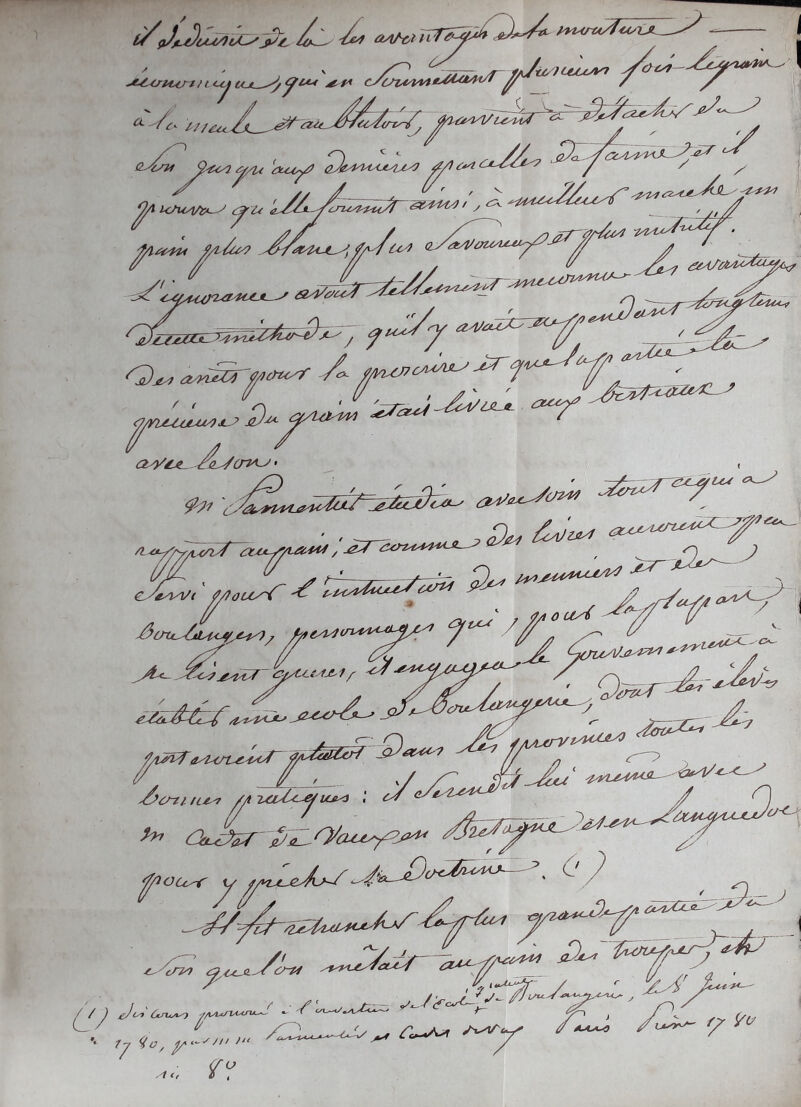 il déduisit de là les avantages de la mouture
économique, qui en soumettant plusieurs fois le grain
à la meule et au blutoir, parvient à détacher du
son jusqu'aux dernières parcelles de farine, et il
prouva qu'elle fournit ainsi, à meilleur marché un
pain plus blanc, plus savoureux et plus nutritif.
L'ignorance avait tellement méconnu les avantages
de cette méthode, qu'il y avait cependant longtems
des arrêts pour la proscrire et que la partie la
précieuse du grain était livrée aux bestiaux
avec le son.
M Parmentier étudia avec soin tout ce qui a
rapport au pain; et comme des livres auroient peu
servi pour l'instruction des meuniers et des
boulangers, personnages qui, pour la plupart,
ne lisent gueres, il engagea le Gouvernement à
établir une ecole de Boulangerie, dont les élèves
porteroient plutôt dans les provinces toutes les
bonnes pratiques: il se rendit lui même avec
M Cadet de Vaux en Bretagne et en Languedoc
pour y prêcher sa doctrine. (1)
Il fit retrancher la plus grande partie du
son que l'on mêlait au pain des troupes, et
(1) discours prononcé à l'ouverture de l'école gratuite de Boulangerie, le 8 Juin
1780, par mm Parmentier et Cadet devaux Paris Pierre 1780
in 8°.